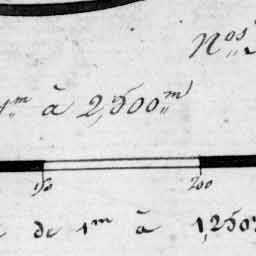 Nos
1m à 2,500m
150 200
de 1m à 1,250